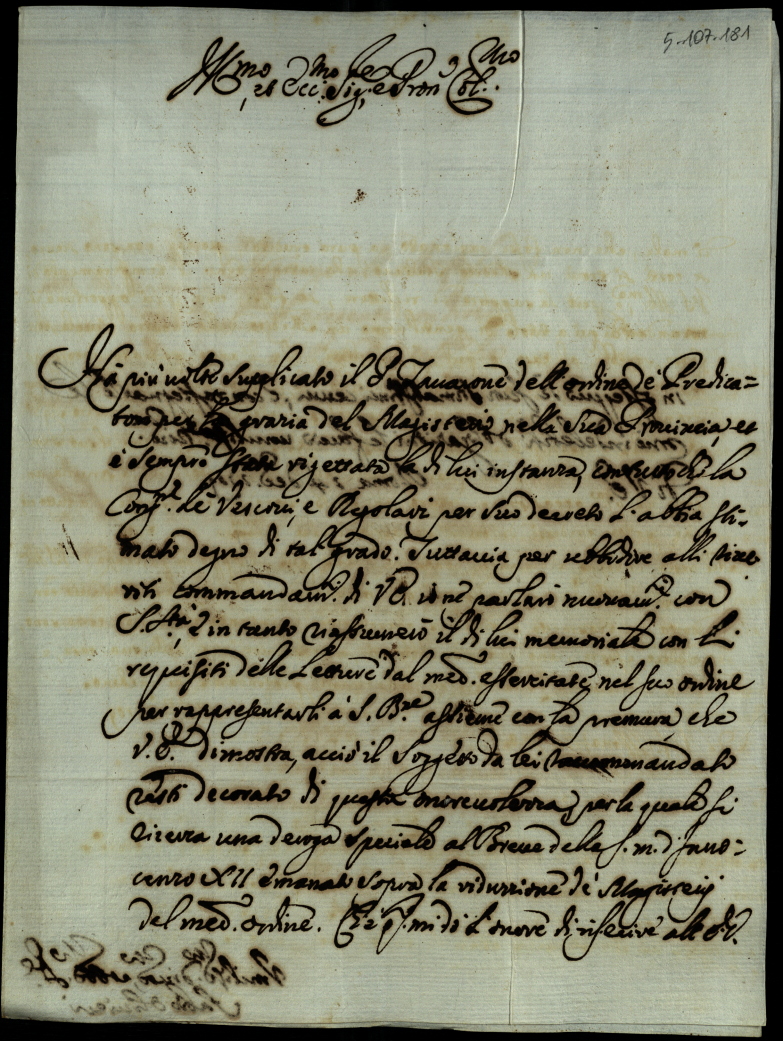 5-107-181
Ill.mo et Ecc.mo Sig.re e Pron Col.mo
Hà più volte supplicato il P. Tauazone dell'ordine de Predica=
tori per la grazia del Magisterio nella sua Prouincia, et
è sempre stata rigettata la di lui instanza, la
Cong.e de Vescoui, e Regolari per suo decreto l'abbia sti=
mato degno di tal grado. Tuttauia per ubbidire alli riue
riti commandam.ti di V.E. io ne parlarò nuouam.te con
S. S.tà, e in tanto riassumerò il di lui memoriale con li
requisiti delle Letture dal med.o essercitate nel suo ordine
per rappresentarli à S. B.ne assieme con la premura, che
V.E. dimostra, acciò il Soggetto da lei raccommandato
resti decorato di questa onoreuolezza, per la quale si
ricerca una deroga speciale al Breue della s. m. d'Inno=
cenzo XII emanato sopra la riduzzione de Magisterij
del med.o ordine. Ch'è q.to mi dò l'onore di riferire all'E.V.